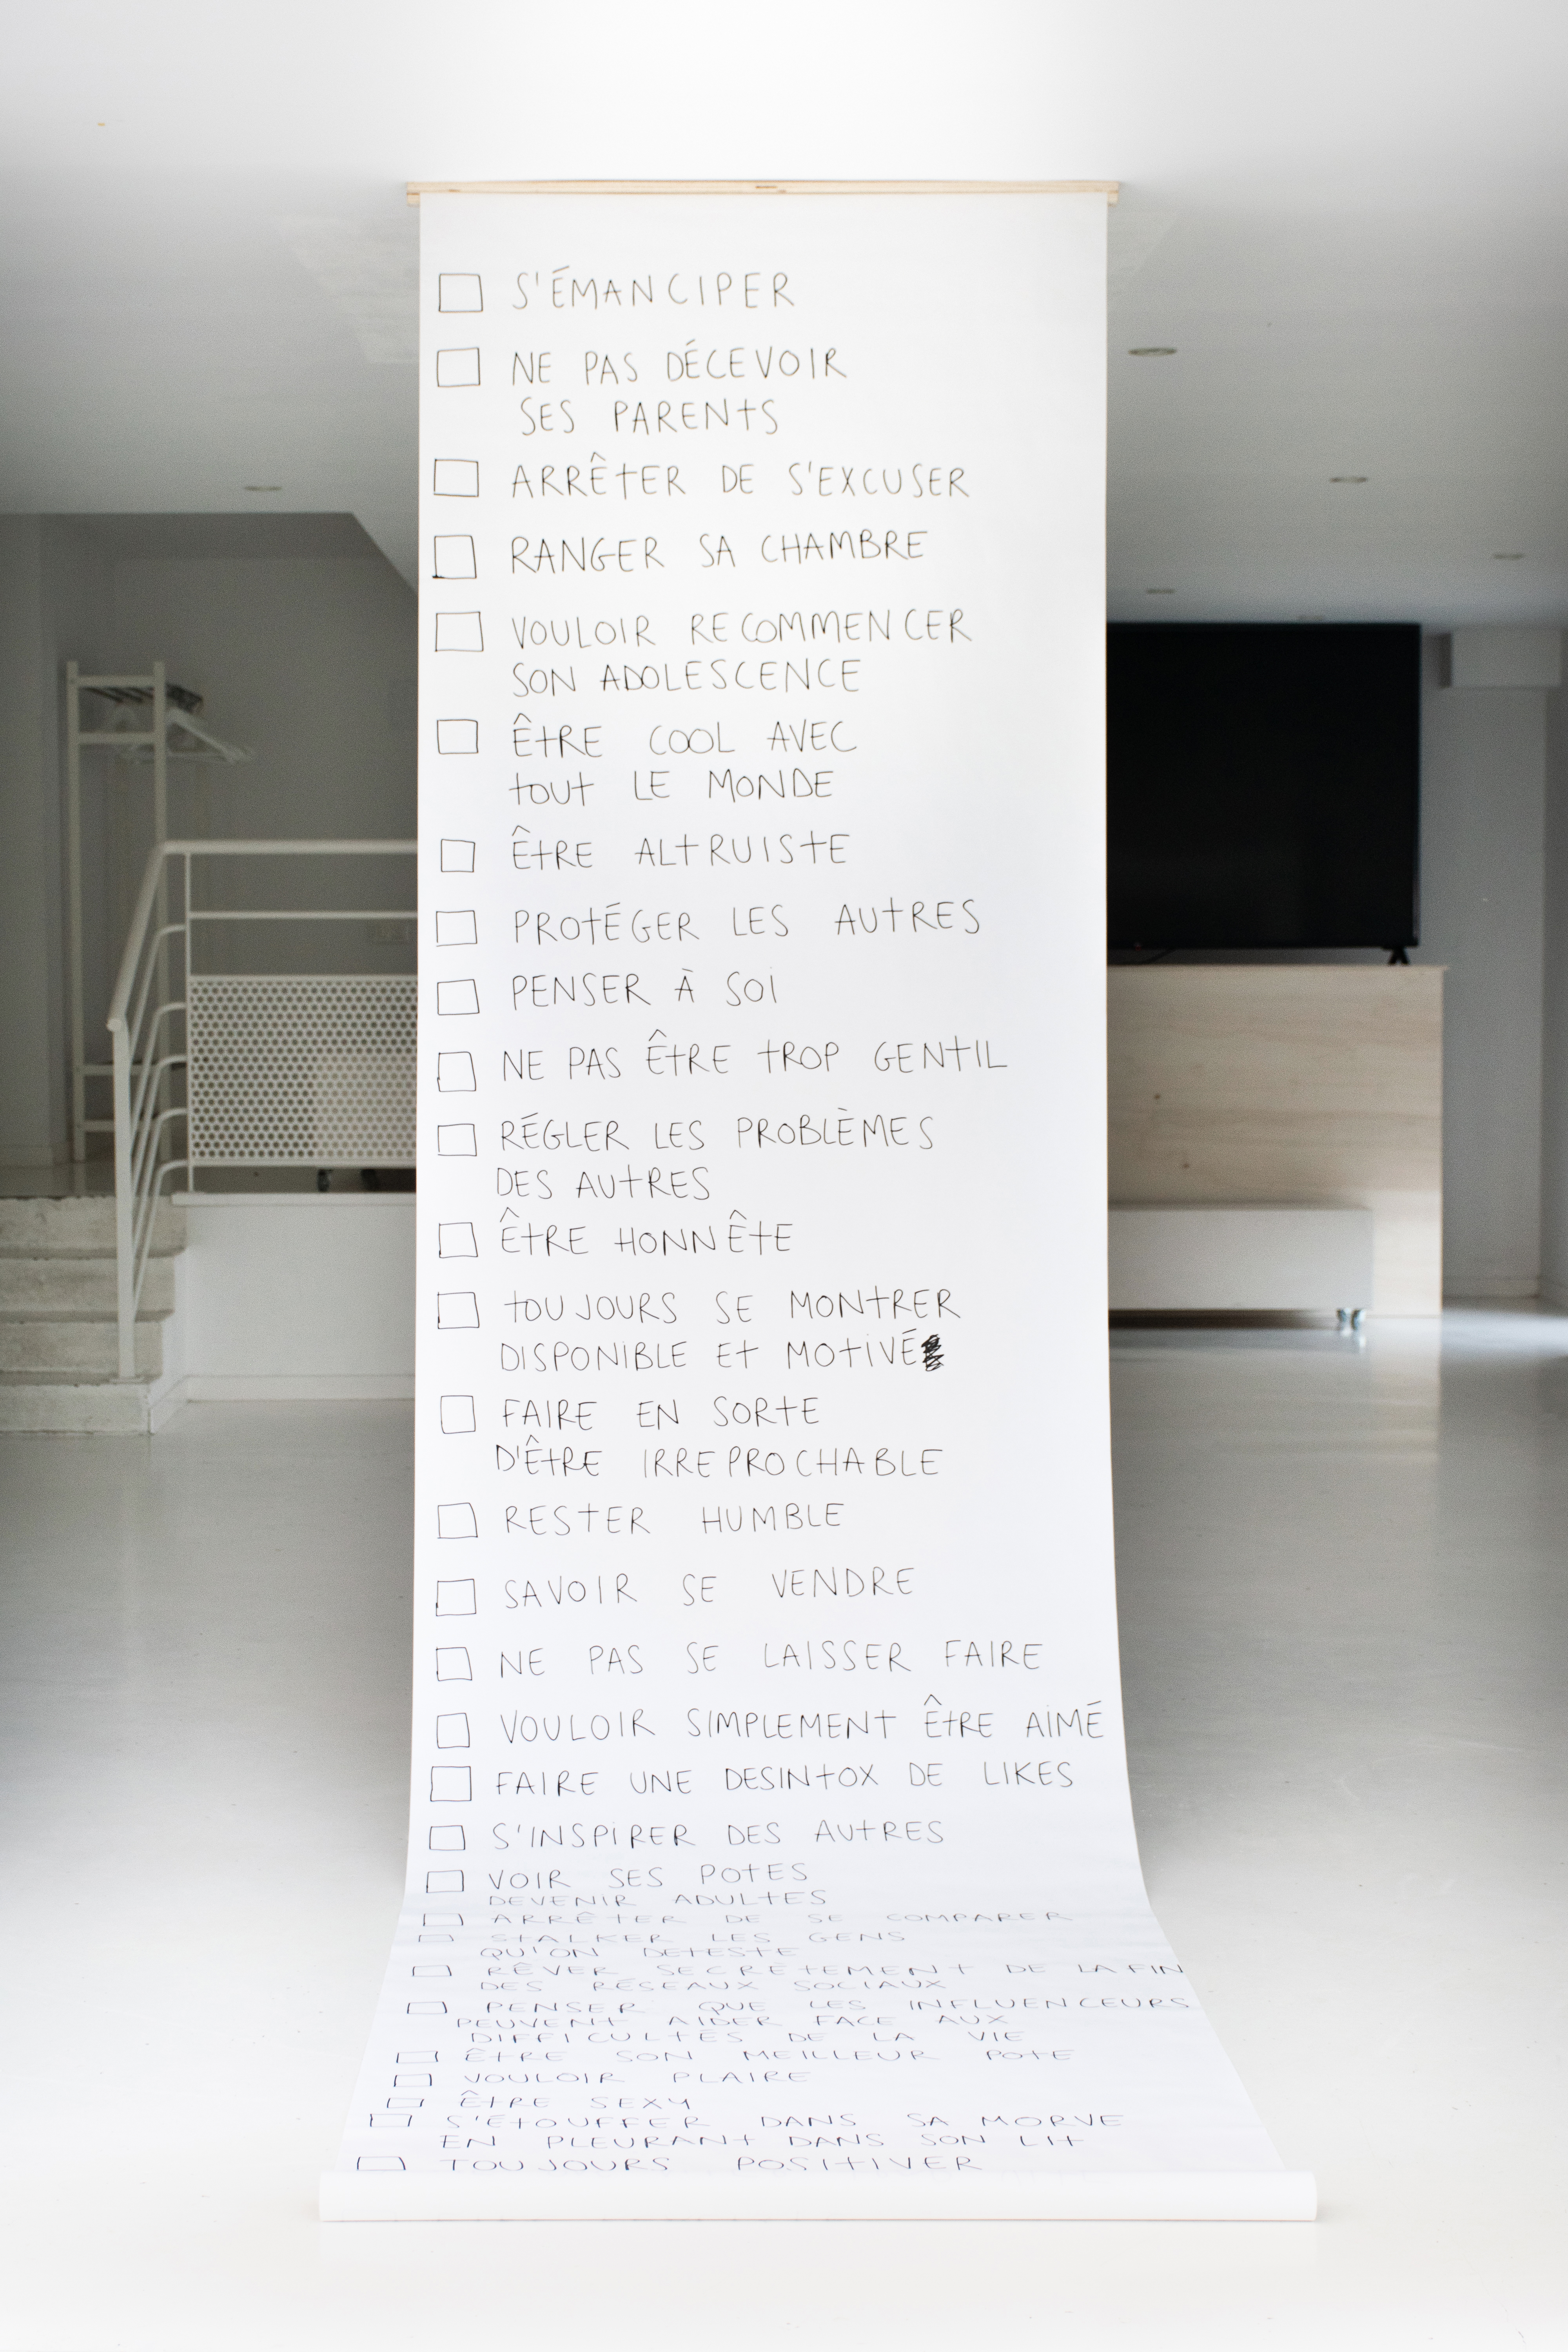 S'ÉMANCIPER
NE PAS DÉCEVOIR
SES PARENTS
ARRÊTER DE S'EXCUSER
RANGER SA CHAMBRE
VOULOIR RECOMMENCER
SON ADOLESCENCE
ÊTRE COOL AVEC
TOUT LE MONDE
ÊTRE ALTRUISTE
PROTÉGER LES AUTRES
PENSER À SOI
NE PAS ÊTRE TROP GENTIL
RÉGLER LES PROBLÈMES
DES AUTRES
ÊTRE HONNÊTE
TOUJOURS SE MONTRER
DISPONIBLE ET MOTIVÉ
FAIRE EN SORTE
D'ÊTRE IRREPROCHABLE
RESTER HUMBLE
SAVOIR SE VENDRE
NE PAS SE LAISSER FAIRE
VOULOIR SIMPLEMENT ÊTRE AIMÉ
FAIRE UNE DESINTOX DE LIKES
S'INSPIRER DES AUTRES
VOIR SES POTES
DEVENIR ADULTES
ARRÊTER DE SE COMPARER
STALKER LES GENS
QU'ON DETESTE
RÊVER SECRETEMENT DE LA FIN
DES RÉSEAUX SOCIAUX
PENSER QUE LES INFLUENCEURS
PEUVENT AIDER FACE AUX
DIFFICULTES DE LA VIE
ÊTRE SON MEILLEUR POTE
VOULOIR PLAIRE
ÊTRE SEXY
S'ÉTOUFFER DANS SA MORVE
EN PLEURANT DANS SON LIT
TOUJOURS POSITIVER